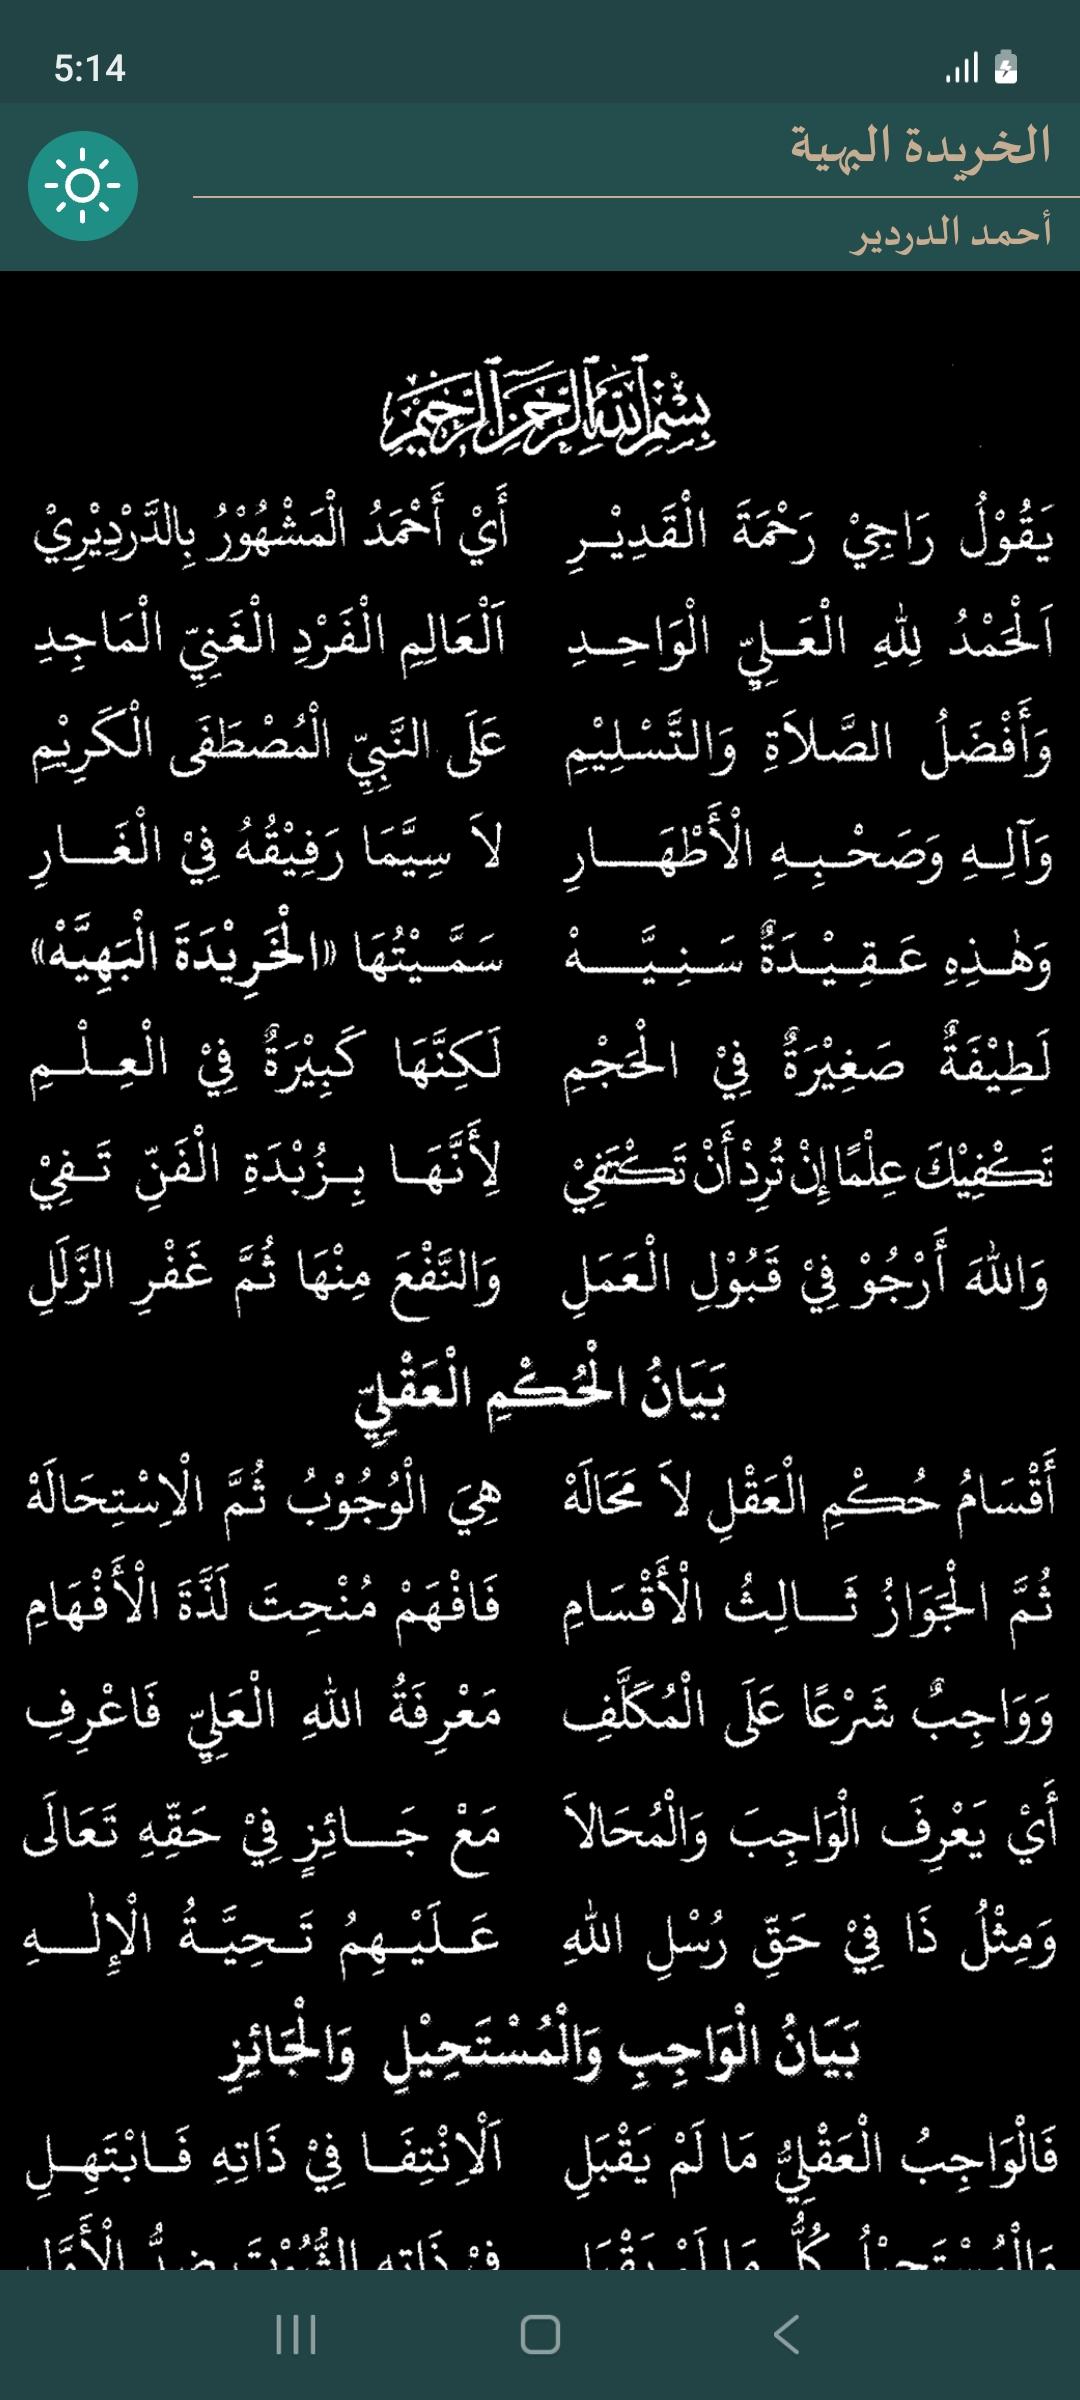 5:14
الخريدة البهية
أحمد الدردير
بِسْمِ اللهِ الرَّحْمَنِ الرَّحِيمِ
يَقُوْلُ رَاجِيْ رَحْمَةَ الْقَدِيْرِ أَيْ أَحْمَدُ الْمَشْهُوْرُ بِالدَّرْدِيْرِيْ
اَلْحَمْدُ لِلهِ الْعَلِيِّ الْوَاحِدِ اَلْعَالِمِ الْفَرْدِ الْغَنِيِّ الْمَاجِدِ
وَأَفْضَلُ الصَّلاَةِ وَالتَّسْلِيْمِ عَلَى النَّبِيِّ الْمُصْطَفَى الْكَرِيْمِ
وَآلِهِ وَصَحْبِهِ الْأَطْهَارِ لاَ سِيَّمَا رَفِيْقُهُ فِيْ الْغَارِ
وَهٰذِهِ عَقِيْدَةٌ سَنِيَّهْ سَمَّيْتُهَا «الْخَرِيْدَةَ الْبَهِيَّهْ»
لَطِيْفَةٌ صَغِيْرَةٌ فِيْ الْحَجْمِ لَكِنَّهَا كَبِيْرَةٌ فِيْ الْعِلْمِ
تَكْفِيْكَ عِلْمًا إِنْ تُرِدْ أَنْ تَكْتَفِيْ لِأَنَّهَا بِزُبْدَةِ الْفَنِّ تَفِيْ
وَاللهَ أَرْجُوْ فِيْ قَبُوْلِ الْعَمَلِ وَالنَّفْعَ مِنْهَا ثُمَّ غَفْرِ الزَّلَلِ
بَيَانُ الْحُكْمِ الْعَقْلِيِّ
أَقْسَامُ حُكْمِ الْعَقْلِ لاَ مَحَالَهْ هِيَ الْوُجُوْبُ ثُمَّ الْاِسْتِحَالَهْ
ثُمَّ الْجَوَازُ ثَالِثُ الْأَقْسَامِ فَافْهَمْ مُنْحِتَ لَذَّةَ الْأَفْهَامِ
وَوَاجِبٌ شَرْعًا عَلَى الْمُكَلَّفِ مَعْرِفَةُ اللهِ الْعَلِيِّ فَاعْرِفِ
أَيْ يَعْرِفَ الْوَاجِبَ وَالْمُحَالاَ مَعْ جَائِزٍ فِيْ حَقِّهِ تَعَالَى
وَمِثْلُ ذَا فِيْ حَقِّ رُسْلِ اللهِ عَلَيْهِمُ تَحِيَّةُ الْإِلٰهِ
بَيَانُ الْوَاجِبِ وَالْمُسْتَحِيْلِ وَالْجَائِزِ
فَالْوَاجِبُ الْعَقْلِيُّ مَا لَمْ يَقْبَلِ اَلْاِنْتِفَا فِيْ ذَاتِهِ فَابْتَهِلِ
وَالْمُسْتَحِيْلُ كُلُّ مَا لَمْ يَقْبَلِ فِيْ ذَاتِهِ الثُّبُوْتَ ضِدُّ الْأَوَّلِ